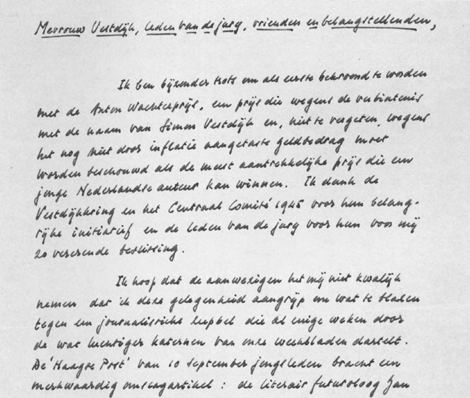 Mevrouw Vestdijk, leden van de jury, vrienden en belangstellenden,
Ik ben bijzonder trots om als eerste bekroond te worden
met de Anton Wachterprijs, een prijs die wegens de verbintenis
met de naam van Simon Vestdijk en, niet te vergeten, wegens
het nog niet door inflatie aangetaste geldbedrag moet
worden beschouwd als de meest aantrekkelijke prijs die een
jonge Nederlandse auteur kan winnen. Ik dank de
Vestdijkkring en het Centraal Comité 1945 voor hun belang-
rijke initiatief en de leden van de jury voor hun voor mij
zo vererende beslissing.
Ik hoop dat de aanwezigen het mij niet kwalijk
nemen dat ik deze gelegenheid aangrijp om wat te blazen
tegen een journalistieke zeepbel die al enige weken door
de wat luchtiger katernen van onze weekbladen danst.
De 'Haagse Post' van 10 september jongstleden bracht een
merkwaardig omslagartikel: de literair futuroloog Jan